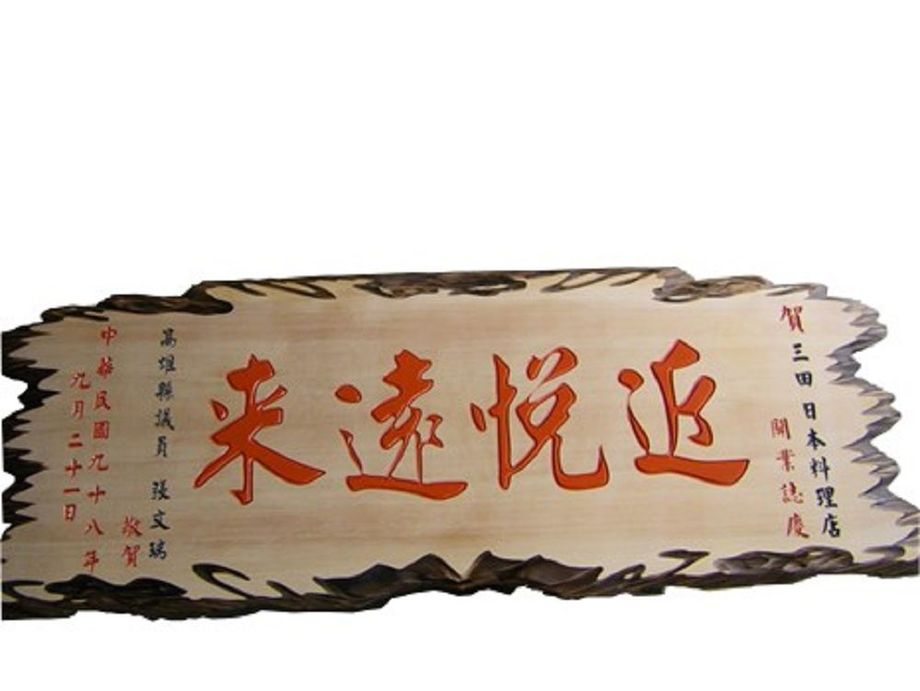 賀 三田日本料理店
開業誌慶
近悦遠来
高雄縣議員 張文瑞
敬賀
中華民國九十八年
九月二十一日